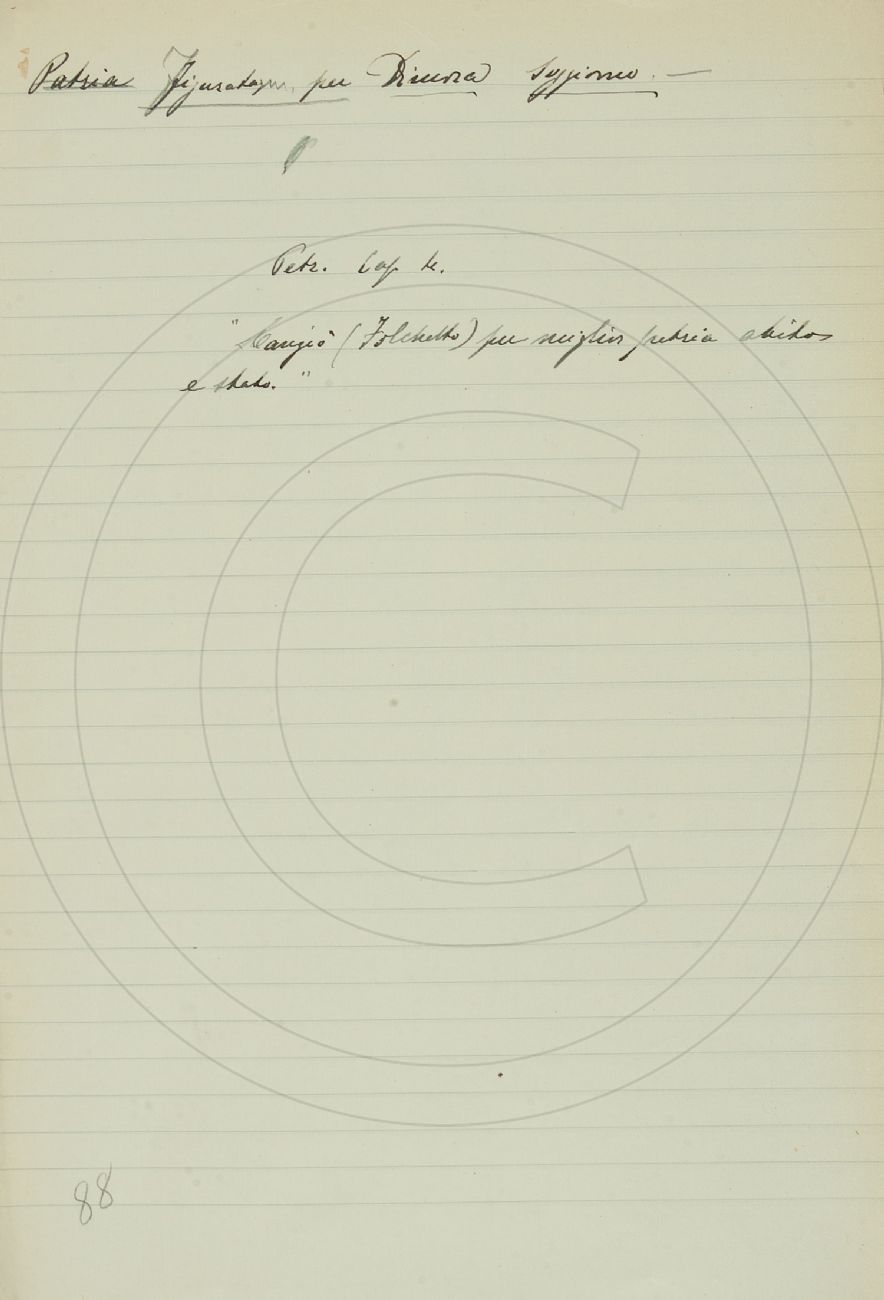 Patria Figuratam. per Dimora Soggiorno. —
Petr. Cap. 4.
" Cangiò (Folchetto) per miglior patria abitos
e stato. "
88